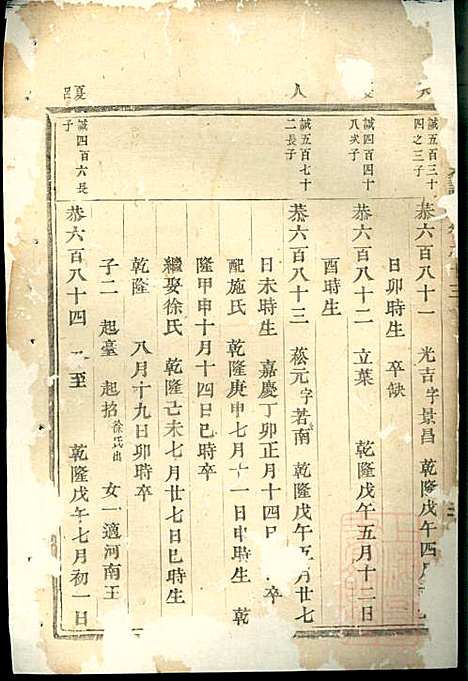 誠五百三十
四之三子
恭六百八十一 光吉 字景昌 乾隆戊午四月
日卯時生 卒缺
誠四百四十
八次子
恭六百八十二 立葉 乾隆戊午五月十二日
酉時生
人
誠五百七十
二長子
恭六百八十三 菘元 字若南 乾隆戊午 月廿七
日未時生 嘉慶丁卯正月十四日 卒
配施氏 乾隆庚申七月十一日申時生 乾
隆甲申十月十四日巳時卒
繼娶徐氏 乾隆己未七月廿七日巳時生
乾隆 八月十九日卯時卒
子二 起臺 起招 徐氏出 女一適河南王
夏
誠四百六長
子
恭六百八十四 至 乾隆戊午七月初一日